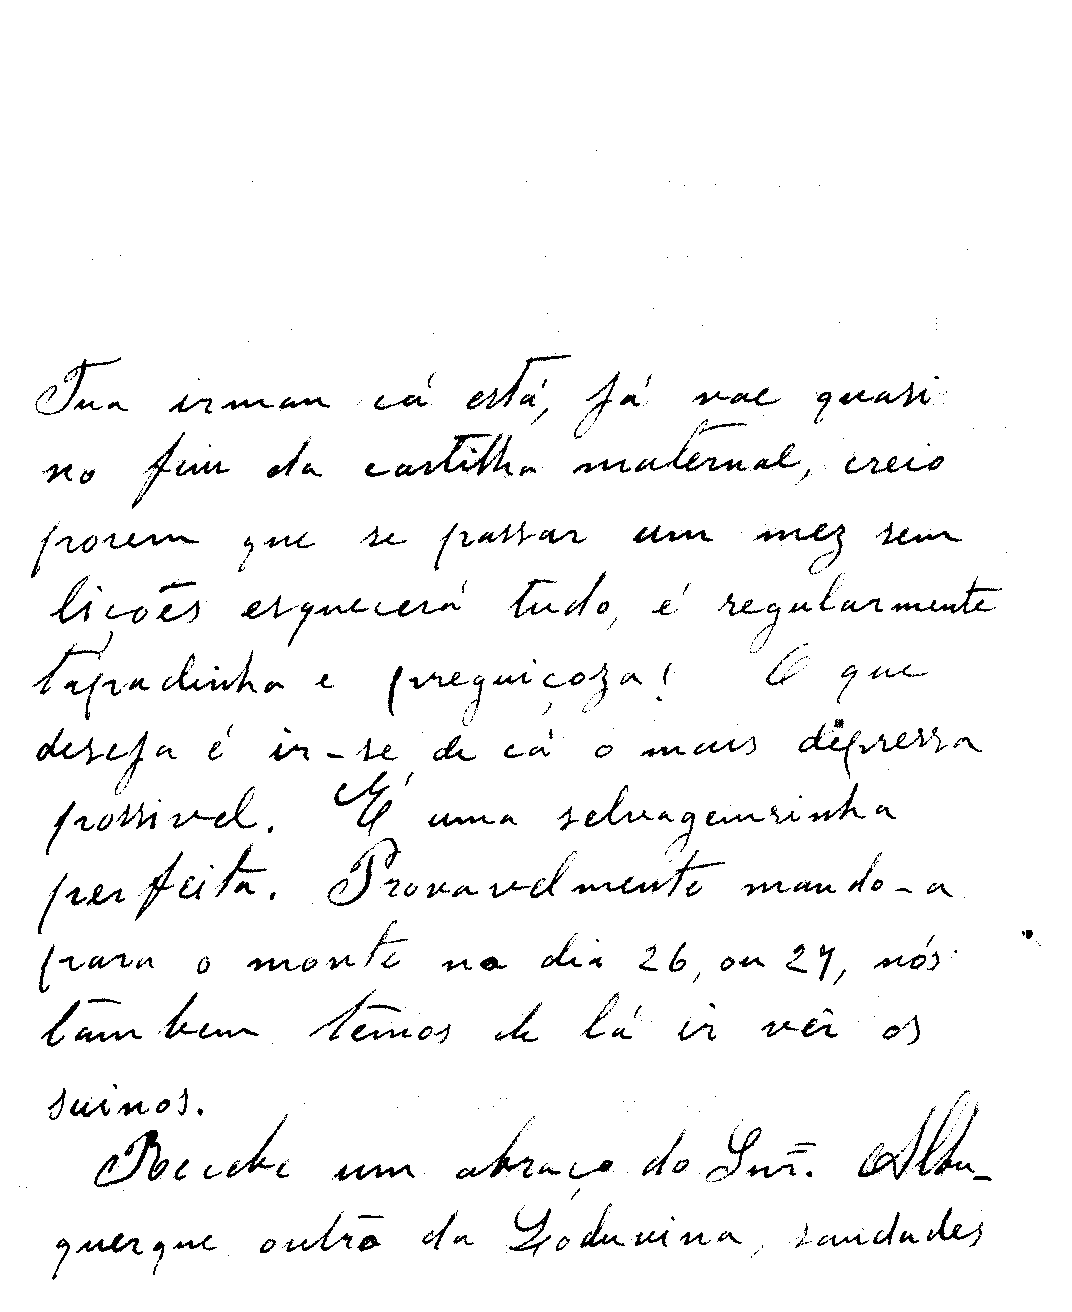 Tua irman cá está, já vae quasi
no fim da cartilha maternal, creio
porem que se passar um mez sem
lições esquecerá tudo, é regularmente
tapadinha e preguiçoza! O que
deseja é ir-se de cá o mais depressa
possivel. É uma selvagemsinha
perfeita. Provavelmente mando-a
para o monte no dia 26, ou 27, nós
tambem temos de lá ir vêr os
suinos.
Recebe um abraço do Snr. Albu-
querque outro da Loduvina, saudades